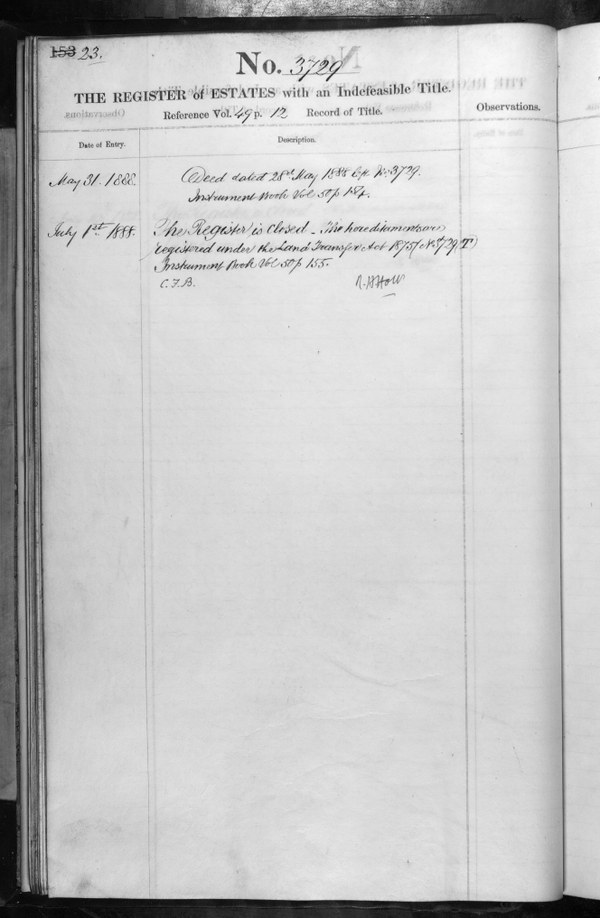 153 23.
No. 3729
THE REGISTER of ESTATES with an Indefeasible Title.
Reference Vol. 49 p. 12 Record of Title.
Observations.
Date of Entry.
Description.
May 31. 1888.
Deed dated 28th May 1888 No. 3729.
Instrument Book Vol 50 p 154.
July 1st 1888.
The Register is closed - The hereditaments are
registered under the Land Transfer Act 1875 (No. 3729 T)
Instrument Book Vol 50 p 155.
C. F. B.